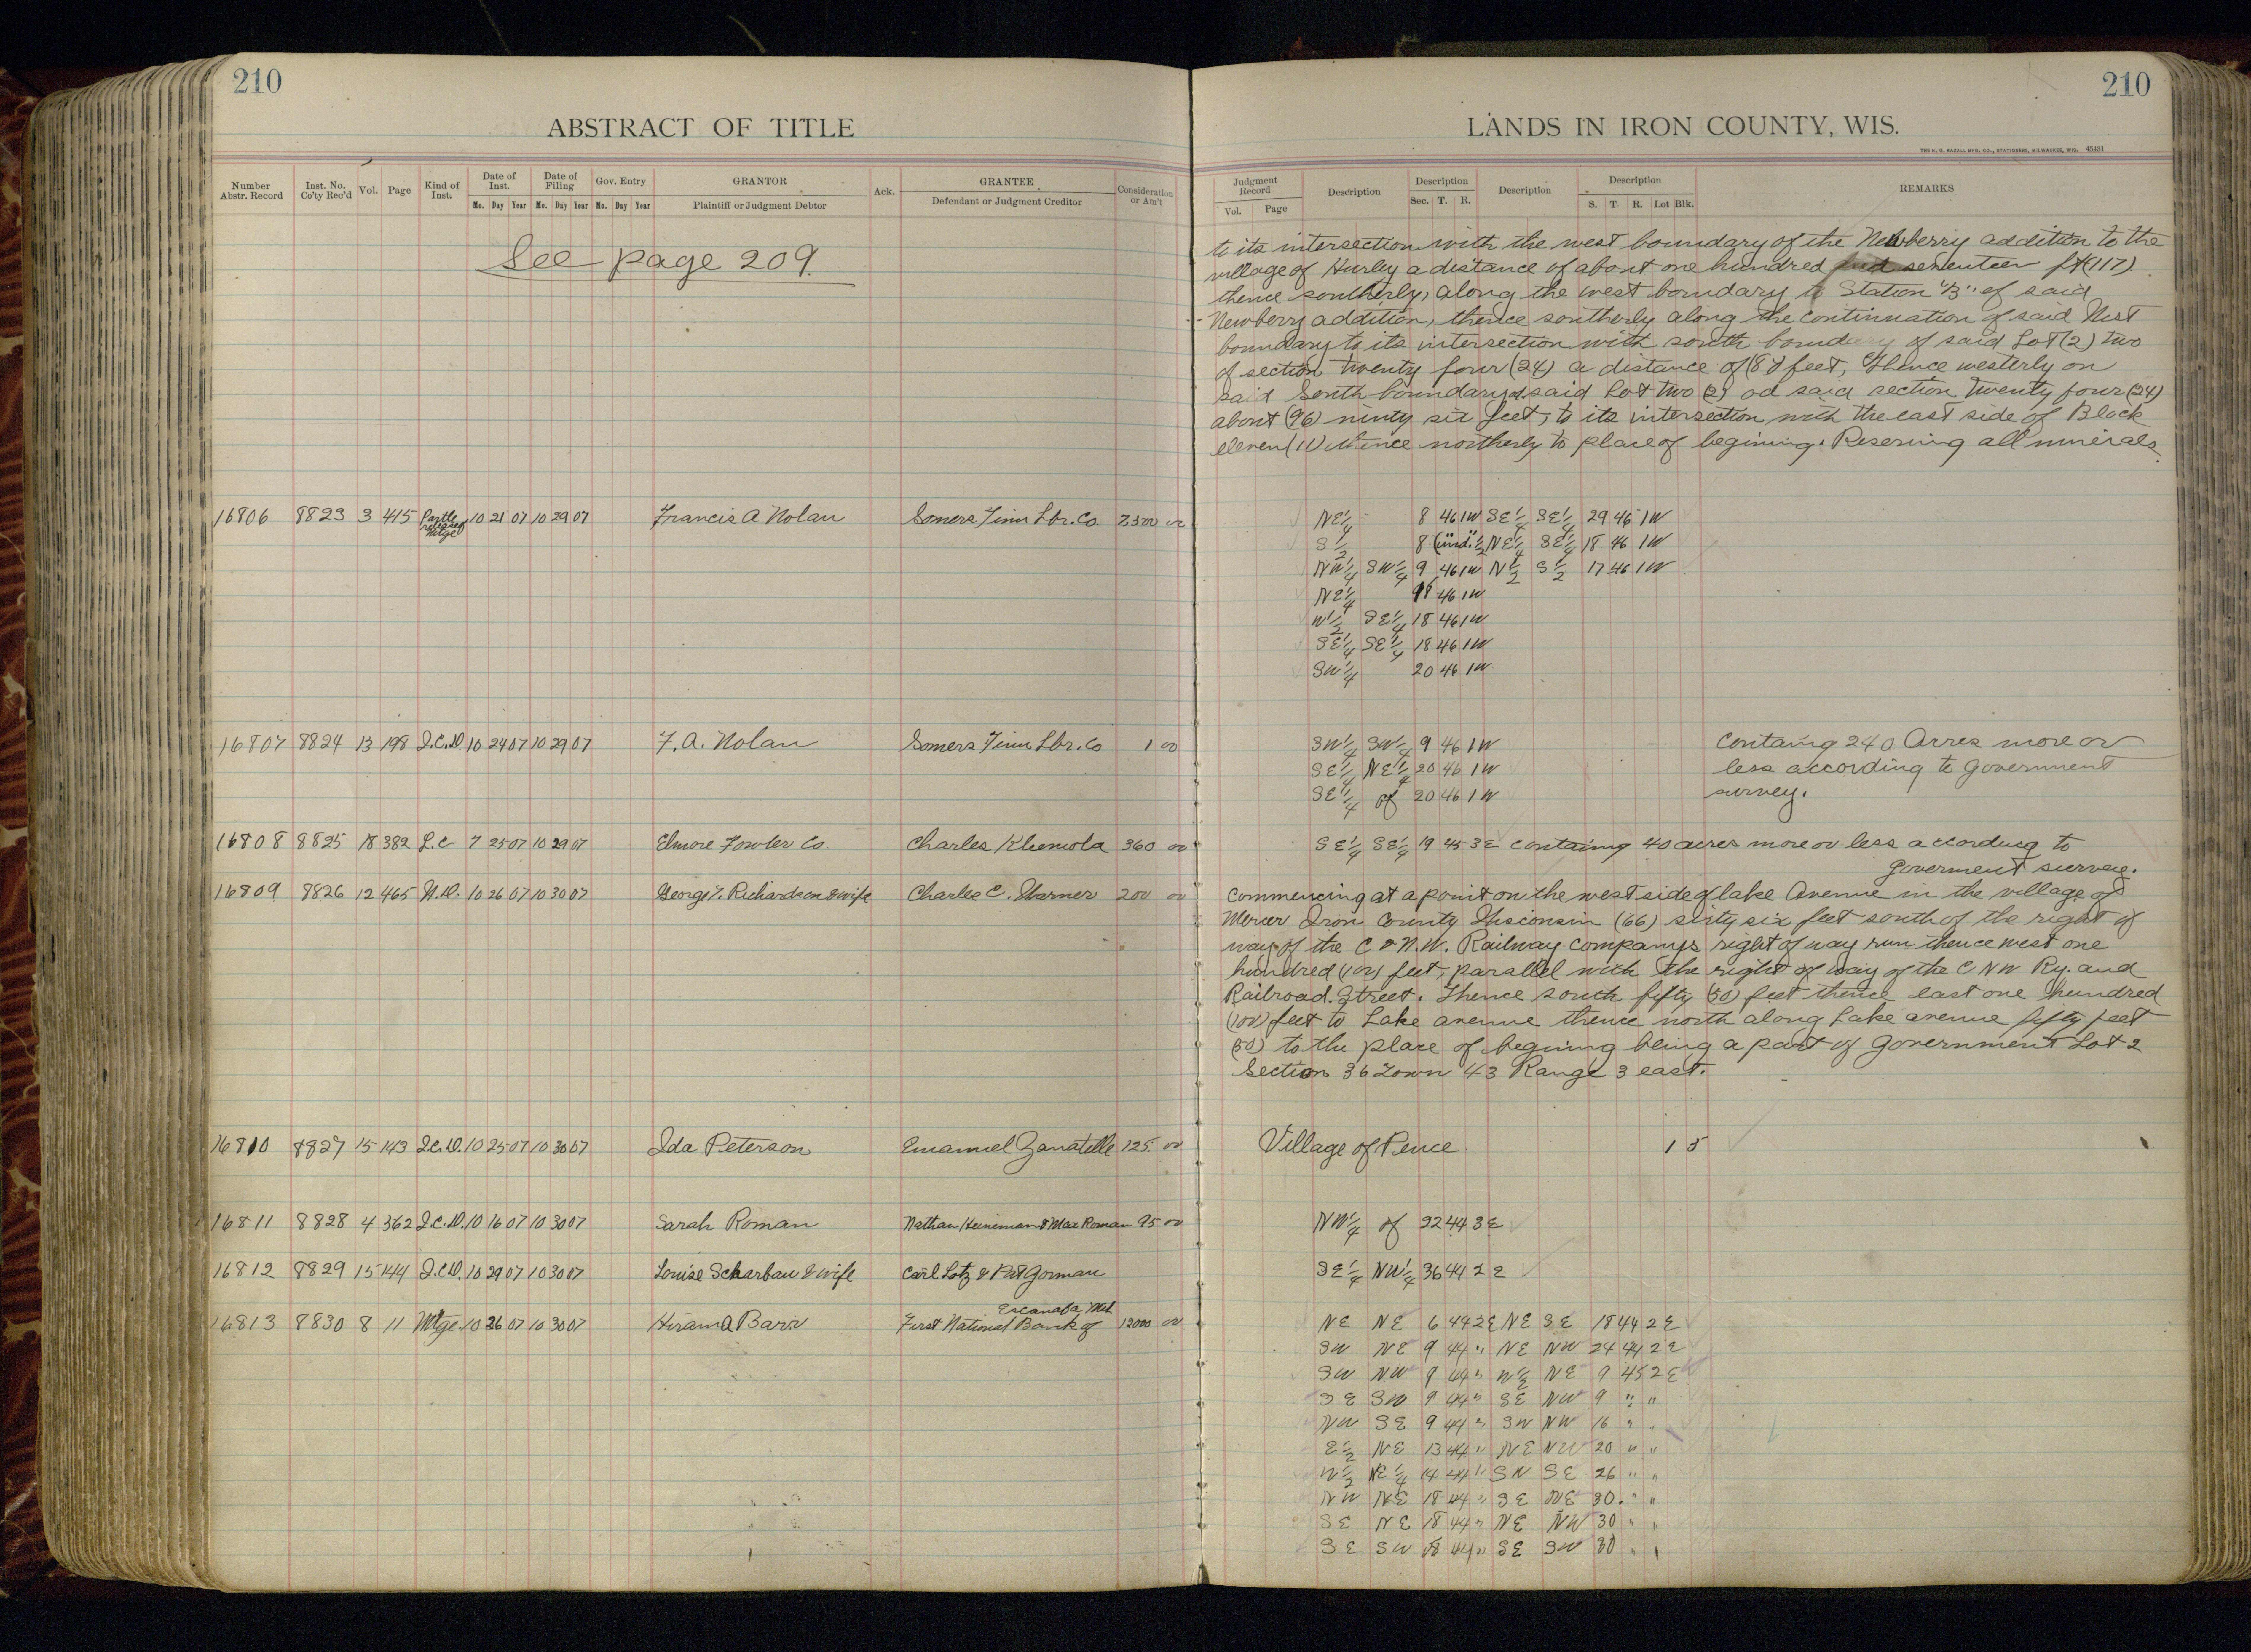 210
ABSTRACT OF TITLE
Number Abstr. Record
Inst. No. Co'ty Rec'd
Vol.
Page
Kind of Inst.
Date of Inst.
Mo. Day Year
Date of Filing
Mo. Day Year
Gov. Entry
Mo. Day Year
GRANTOR
Plaintiff or Judgment Debtor
Ack.
GRANTEE
Defendant or Judgment Creditor
Consideration or Am't
See page 209.
16806 8823 3 415 Partle release of Mtge 10 21 07 10 29 07 Francis A Nolan Somers Finn Lbr. Co. 7500 00
16807 8824 13 198 Q.C.D. 10 24 07 10 29 07 F. A. Nolan Somers Finn Lbr. Co 1 00
16808 8825 18 382 L.C 7 25 07 10 29 07 Elmore Fowler Co. Charles Klemola 360 00
16809 8826 12 465 W.D. 10 26 07 10 30 07 George T. Richardson & wife Charles C. Warner 200 00
16810 8827 15 143 Q.C.D. 10 25 07 10 30 07 Ida Peterson Emanuel Zanatelle 125. 00
16811 8828 4 362 Q.C.D. 10 16 07 10 30 07 Sarah Roman Nathan Heineman & Max Roman 95 00
16812 8829 15 144 Q.C.D. 10 29 07 10 30 07 Louise Scharbau & wife Carl Lotz & Pat Gorman
16813 8830 8 11 Mtge 10 26 07 10 30 07 Hiram A Barr First National Bank of Escanaba, Mch 12000 00
210
LANDS IN IRON COUNTY, WIS.
45431
Judgment Record
Vol. Page
Description
Description
Sec. T. R.
Description
Description
S. T. R. Lot Blk.
REMARKS
to its intersection with the west boundary of the Newberry addition to the
village of Hurley a distance of about one hundred and seventeen ft (117)
thence southerly, along the west boundary to Station "B" of said
Newberry addition, thence southerly along the continuation of said West
boundary to its intersection with south boundary of said Lot (2) two
of section twenty four (24) a distance of feet, thence westerly on
said South boundary of said Lot two (2) od said section twenty four (24)
about (96) ninty six feet, to its intersection with the east side of Block
eleven (11) thence northerly to place of begining. Reserving all minerals.
NE 1/4 8 46 1W SE 1/4 SE 1/4 29 46 1W
S 1/2 8 " " (und. 1/2 NE 1/4 SE 1/4 18 46 1W
NW 1/4 SW 1/4 9 46 1W N 1/2 S 1/2 17 46 1W
NE 1/4 18 46 1W
W 1/2 SE 1/4 18 46 1W
SE 1/4 SE 1/4 18 46 1W
SW 1/4 20 46 1W
SW 1/4 SW 1/4 9 46 1W Containg 240 Acres more or
SE 1/4 NE 1/4 20 46 1W less according to Government
SE 1/4 of 20 46 1W survey.
SE 1/4 SE 1/4 19 45 3E containig 40 acres more or less according to
Goverment survey.
Commencing at a point on the west side of lake Avenue in the village of
Mercer Iron County Wisconsin (66) sixty six feet south of the right of
way of the C & N.W. Railway Companys right of way run thence west one
hundred (100) feet, parallel with the right of way of the C NW Ry. and
Railroad Street. Thence south fifty (50) feet thence east one hundred
(100) feet to Lake avenue thence north along Lake avenue fifty feet
(50) to the place of begining being a part of Government Lot 2
Section 36 Town 43 Range 3 east.
Village of Pence 1 5
NW 1/4 of 22 44 3E
SE 1/4 NW 1/4 36 44 2E
NE NE 6 44 2E NE SE 18 44 2E
SW NE 9 44 " NE NW 24 44 2E
SW NW 9 44 " W 1/2 NE 9 45 2E
SE SW 9 44 " SE NW 9 " "
NW SE 9 44 " SW NW 16 " "
E 1/2 NE 13 44 " NE NW 20 " "
W 1/2 NE 1/4 14 44 " SW SE 26 " "
NW NE 18 44 " SE NE 30 " "
SE NE 18 44 " NE NW 30 " "
SE SW 18 44 " SE SW 30 " "